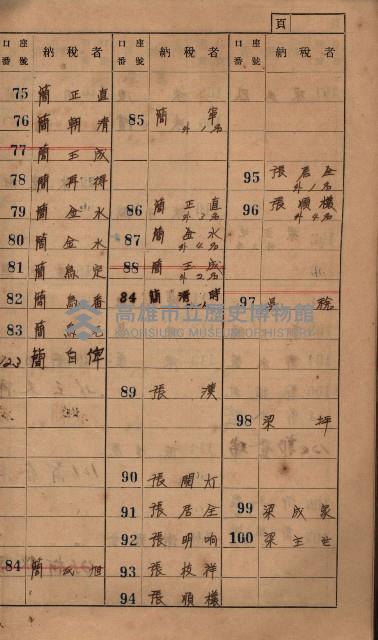 頁
口座番號 納稅者 口座番號 納稅者 口座番號 納稅者
75 簡正直
76 簡朝清
77 簡王成
78 簡再得
79 簡金水
80 簡金水
81 簡為定
82 簡為番
83 簡為
123 簡自俥
84 簡成旭
85 簡寧 外1名
86 簡正直 外3名
87 簡金水 外4名
88 簡王成 外名
84 簡清
89 張漢
90 張開灯
91 張居全
92 張明响
93 張枝祥
94 張順樣
95 張居全 外1名
96 張順樣 外4名
97 吳稅
98 梁坪
99 梁成家
100 梁主世
高雄市立歷史博物館
KAOHSIUNG MUSEUM OF HISTORY